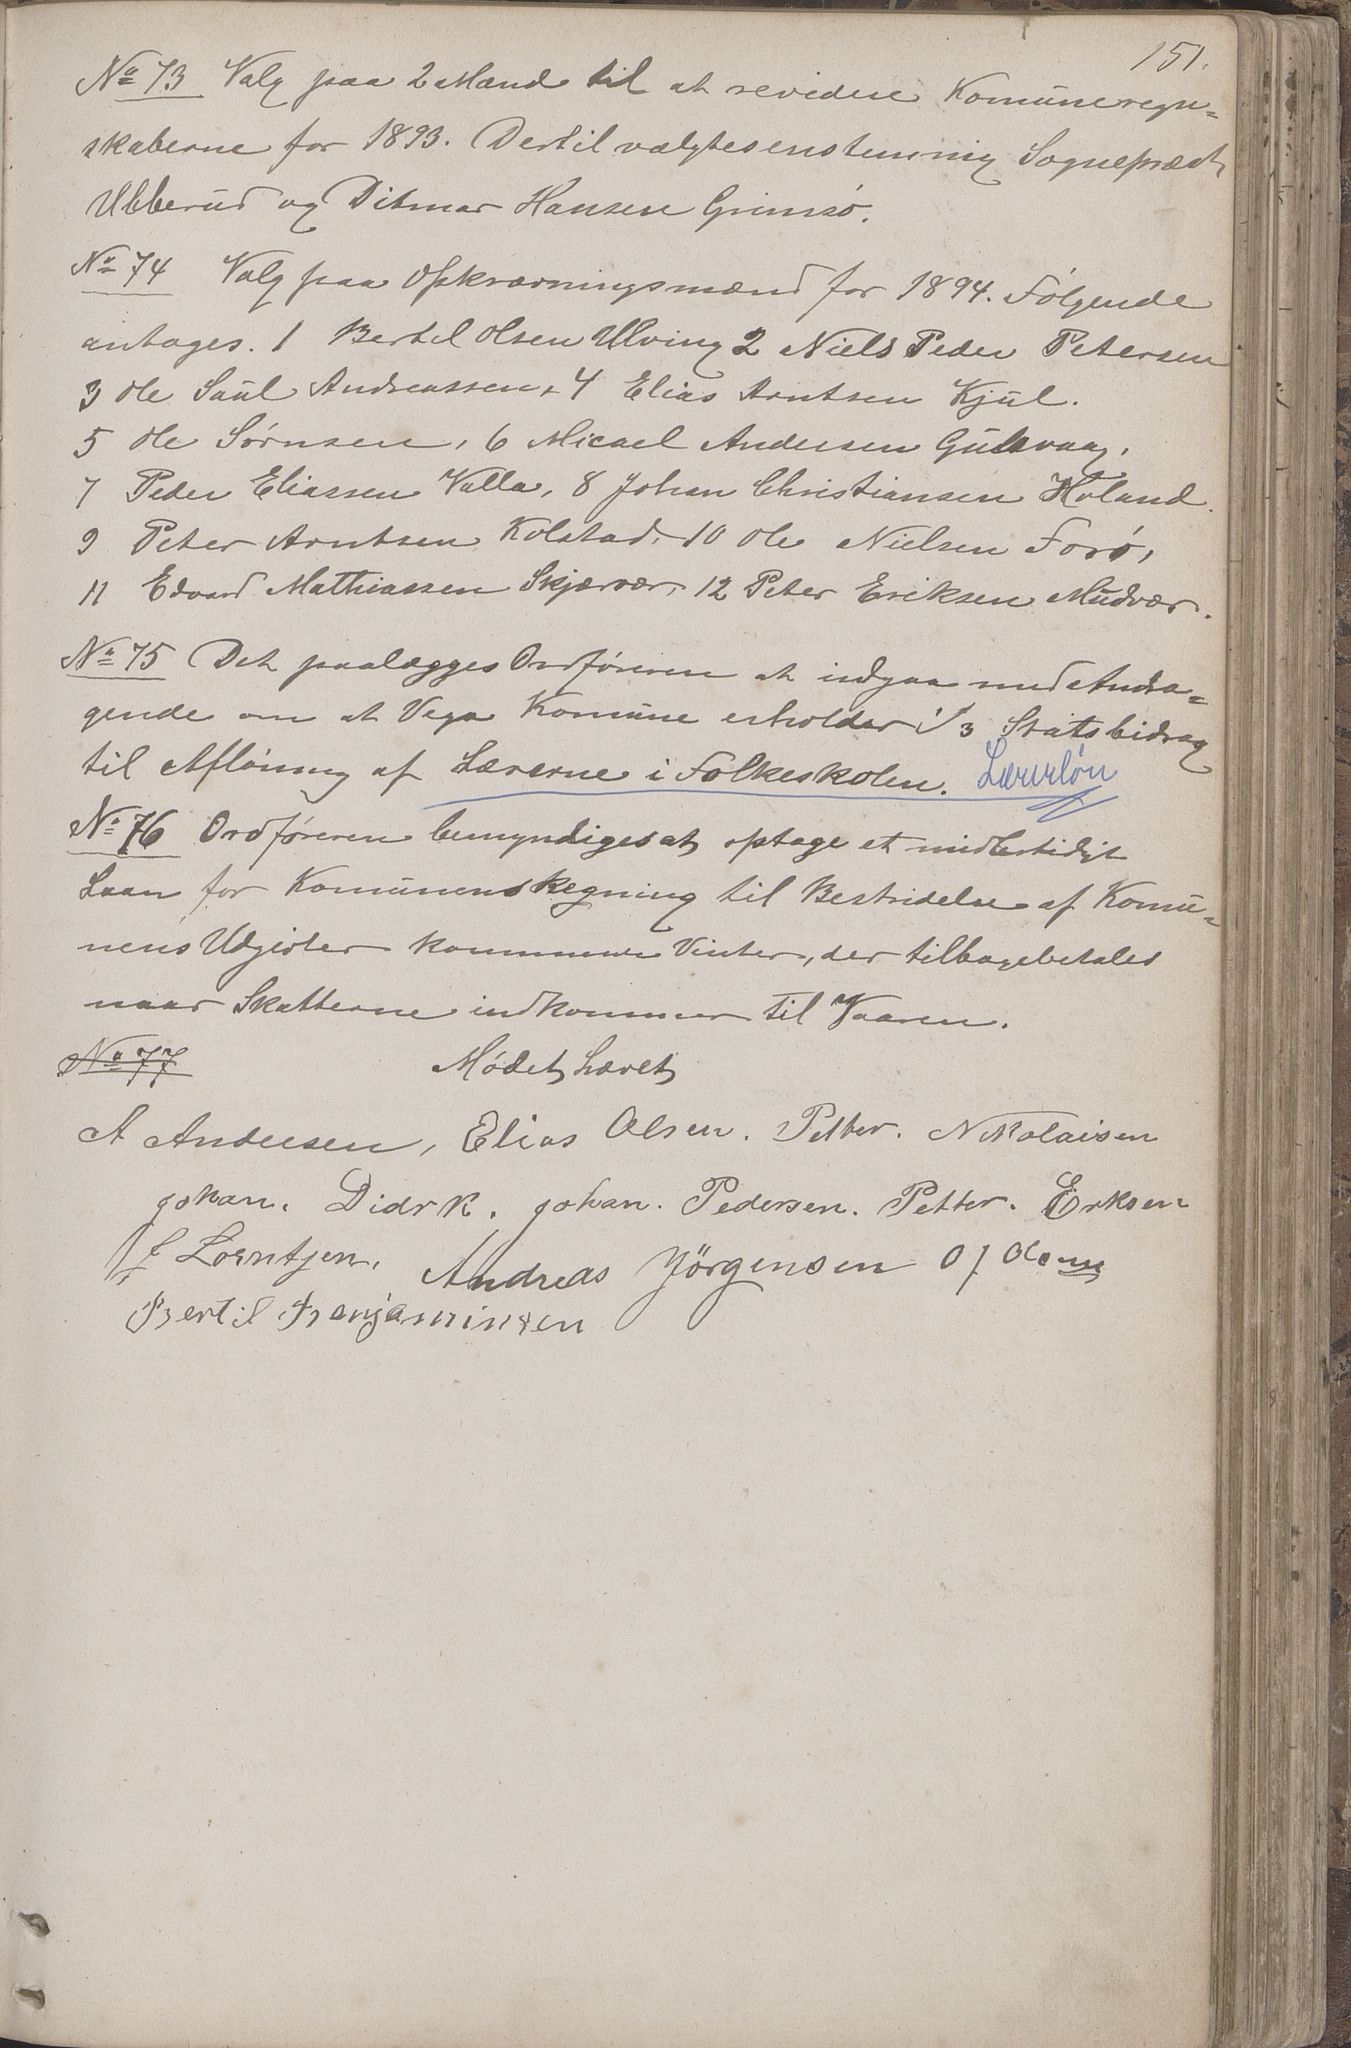 151.
No 73 Valg paa 2 Mænd til at revidere Komuneregn-
skaberne for 1893. Dertil valgtes enstemmig Sogneprest
Ubberud og Ditmar Hansen Grimsø.
No 74 Valg paa Opkrævningsmænd for 1894. Følgende
antages. 1 Bertel Olsen Ulving 2 Niels Peder Petersen
3 Ole Saul Andreassen, 4 Elias Arntsen Kjul.
5 Ole Sørnsen, 6 Micael Andersen Gulsvaag,
7 Peder Eliassen Valla, 8 Johan Christiansen Holand.
9 Peter Arntsen Kolstad, 10 Ole Nielsen Forø,
11 Edvard Mathiassen Skjærvær, 12 Peter Eriksen Mudvær.
No 75 Det paalægges Ordføreren at indgaa med Andra-
gende om at Vega Komune erholder 1/3 Statsbidrag
til Aflønning af Lærerne i Folkeskolen. Lærerløn
No 76 Ordføreren bemyndiges at optage et midlertidigt
Laan for Komunens Regning til Bestridelse af Komu-
nens Udgivter kommende Vinter, der tilbagebetales
naar Skatterne indkommer til Vaaren.
No 77 Mødet hævet
A Andersen, Elias Olsen. Petter. Nikolaisen
Johan. Didrk. Johan. Pedersen. Petter. Erksen
Lorntsen. Andreas Jörgensen
Bertil Benjaminsen